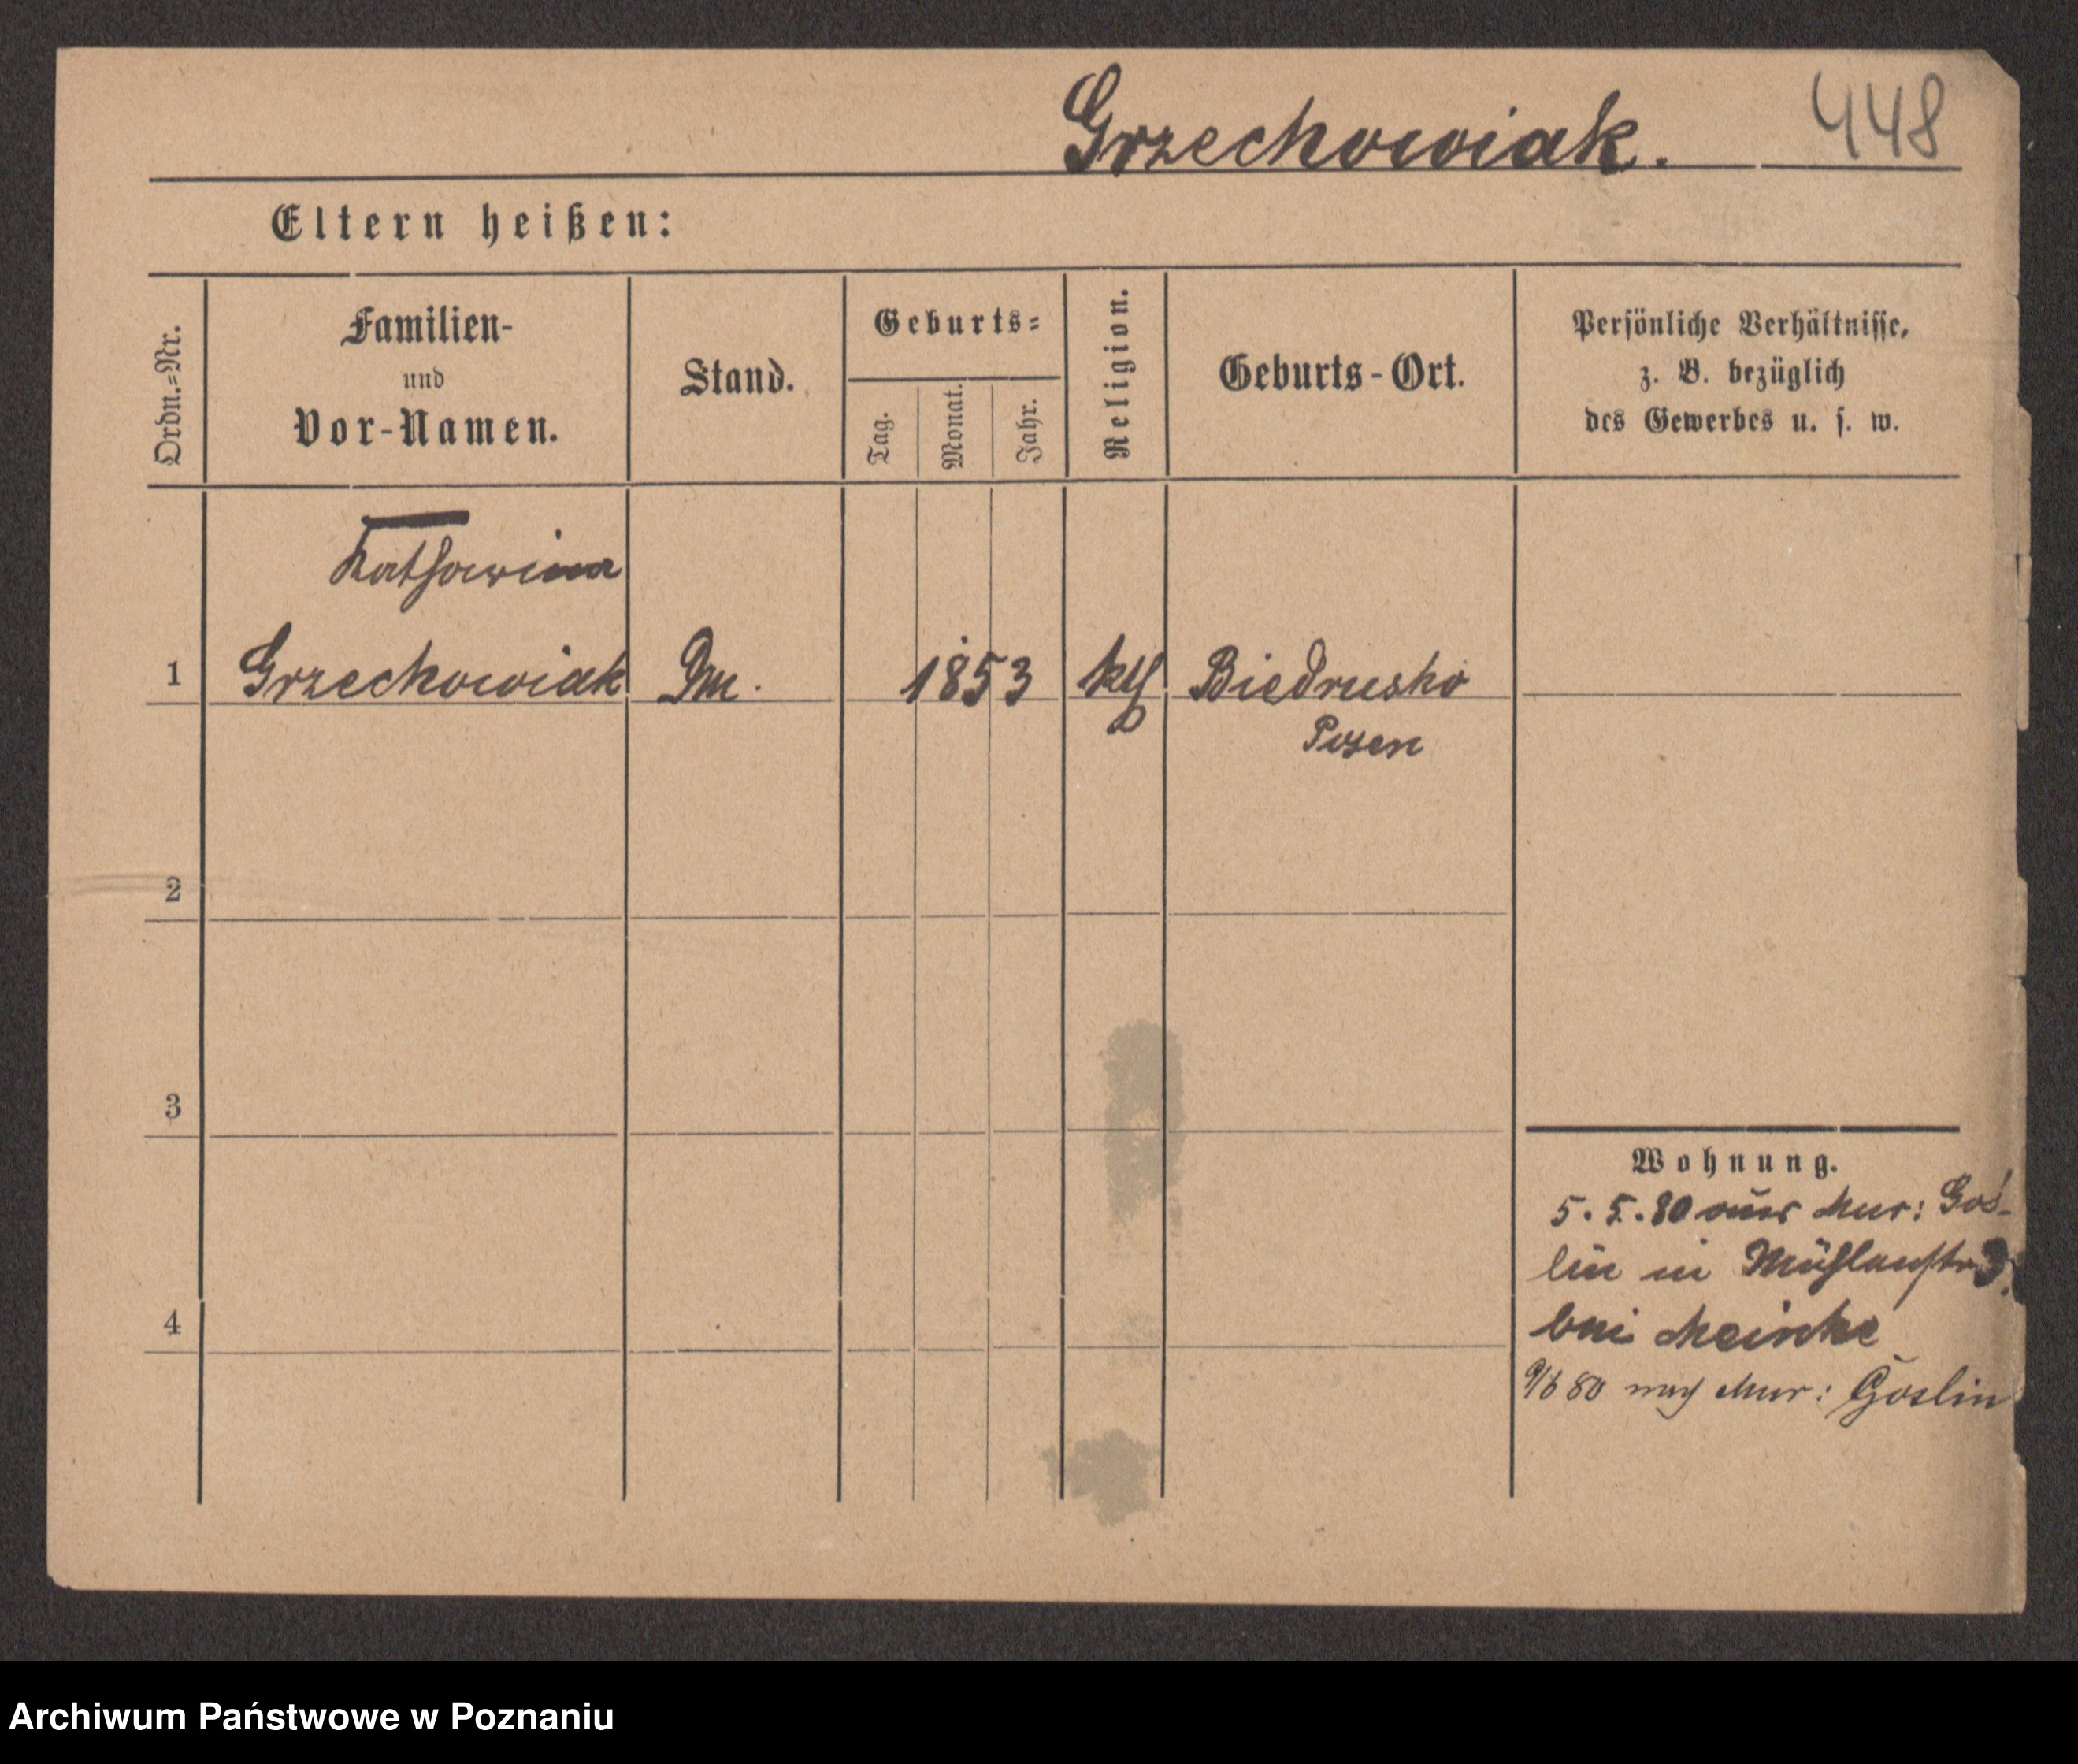 Grzechowiak. 448
Eltern heißen:
Ordn.=Nr.
Familien-
und
Vor-Namen.
Stand.
Geburts=
Tag.
Monat.
Jahr.
Religion.
Geburts-Ort.
Persönliche Verhältnisse,
z. B. bezüglich
des Gewerbes u. s. w.
Katharina
1 Grzechowiak Dm. 1853 kth Biedrusko
Posen
2
3
4
Wohnung.
5.5.80 aus Mur: Gos-
lin in Mühlenstr 3.
bei Meinke
9/6 80 nach Mur: Goslin
Archiwum Państwowe w Poznaniu